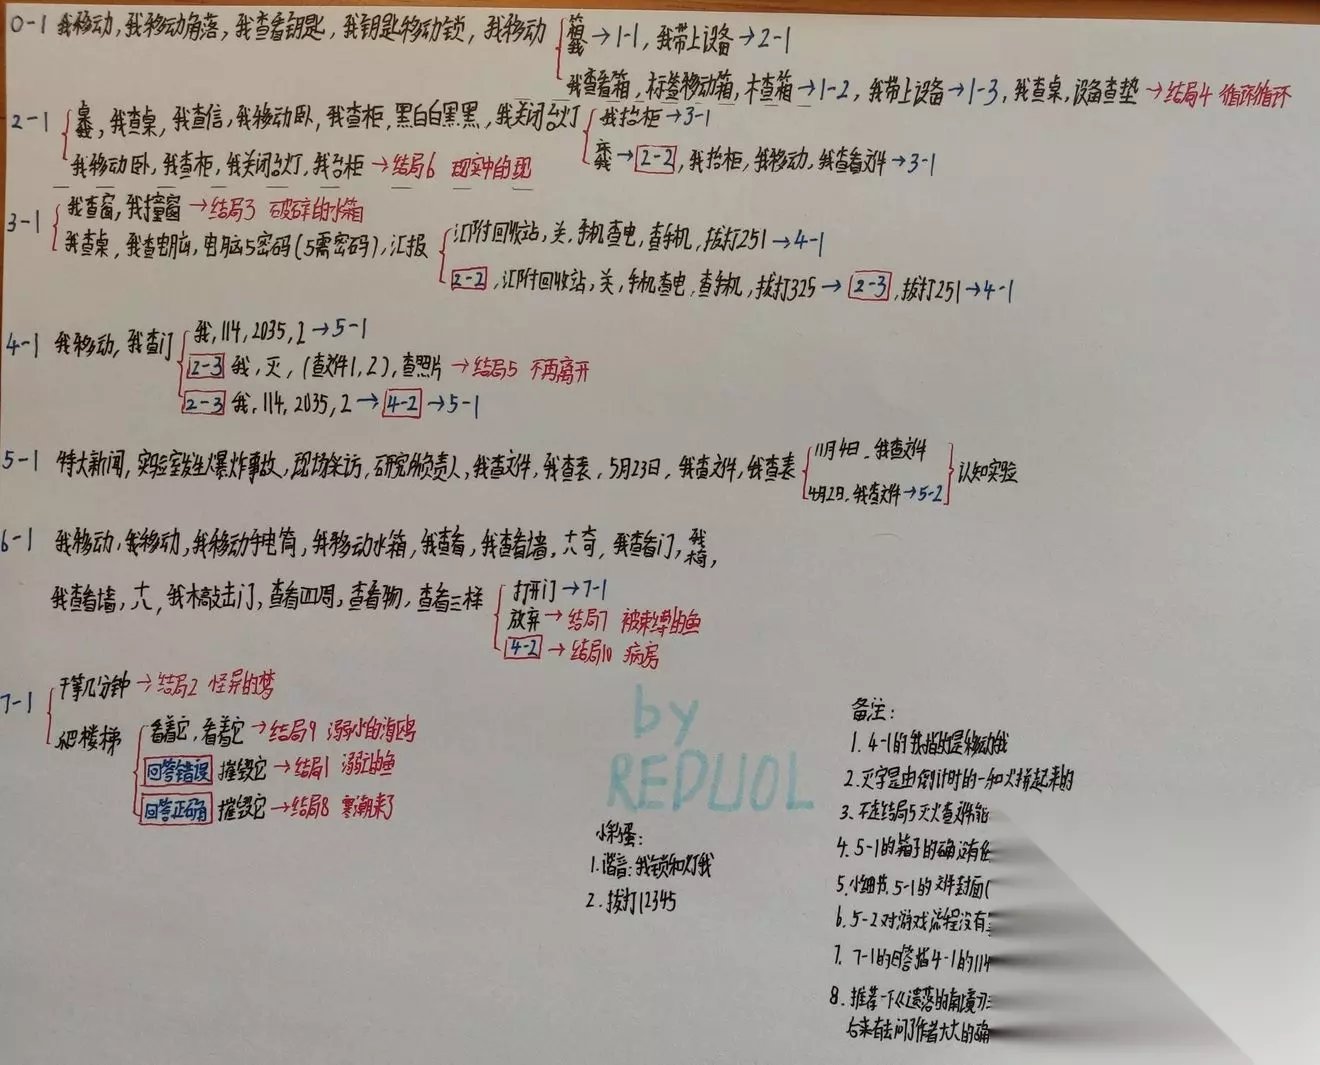 0-1 我移动,我移动角落,我查看钥匙,我钥匙移动锁,我移动
箱我→1-1,我带上设备→2-1
我查看箱,标签移动箱,木查箱→1-2,我带上设备→1-3,我查桌,设备查垫→结局4 循环循环
2-1
我查桌,我查信,我移动卧,我查柜,黑白白黑黑,我关闭台灯
我抬柜→3-1
我→2-2,我抬柜,我移动,我查看文件→3-1
我移动卧,我查柜,我关闭台灯,我台柜→结局6 现实中的现
3-1
我查窗,我撞窗→结局3 破碎的水箱
我查桌,我查电脑,电脑5密码(5需密码),汇报
汇附回收站,关,手机查电,查手机,拨打251→4-1
2-2,汇附回收站,关,手机查电,查手机,拨打325→2-3,拨打251→4-1
4-1 我移动,我查门
我,114,2035,2→5-1
2-3 我,灭,(查文件1,2),查照片→结局5 不再离开
2-3 我,114,2035,2→4-2→5-1
5-1 特大新闻,实验室发生爆炸事故,现场采访,研究所负责人,我查文件,我查表,5月23日,我查文件,我查表
11月4日,我查文件
4月2日,我查文件→5-2
认知实验
6-1 我移动,我移动,我移动手电筒,我移动水箱,我查看,我查看墙,六奇,我查看门,
我查看墙,六,我木敲击门,查看四周,查看物,查看三样
打开门→7-1
放弃→结局7 被束缚的鱼
4-2→结局10 病房
7-1
干等几分钟→结局2 怪异的梦
爬楼梯
看着它,看着它→结局9 溺水的海鸥
回答错误 摧毁它→结局1 溺亡的鱼
回答正确 摧毁它→结局8 寒潮来了
by
REDUOL
小彩蛋:
1.谐音:我锁和灯我
2.拨打12345
备注:
1.4-1的我指的是移动我
2.灭字是由倒计时的一和火拼起来的
3.不走结局5灭火查文件能
4.5-1的箱子的确没有任
5.小细节,5-1的文件封面(
6.5-2对游戏流程没有
7.7-1的回答指4-1的114
8.推荐一下《遗落的南境
后来有去问了作者大大的确